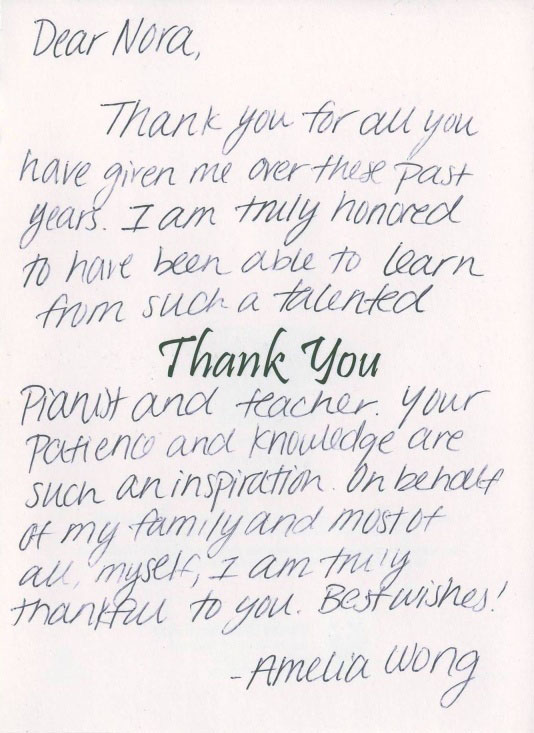 Dear Nora,
Thank you for all you
have given me over these past
years. I am truly honored
to have been able to learn
from such a talented
Thank You
Pianist and teacher. Your
Patience and knowledge are
such an inspiration. On behalf
of my family and most of
all, myself, I am truly
thankful to you. Best wishes!
-Amelia Wong